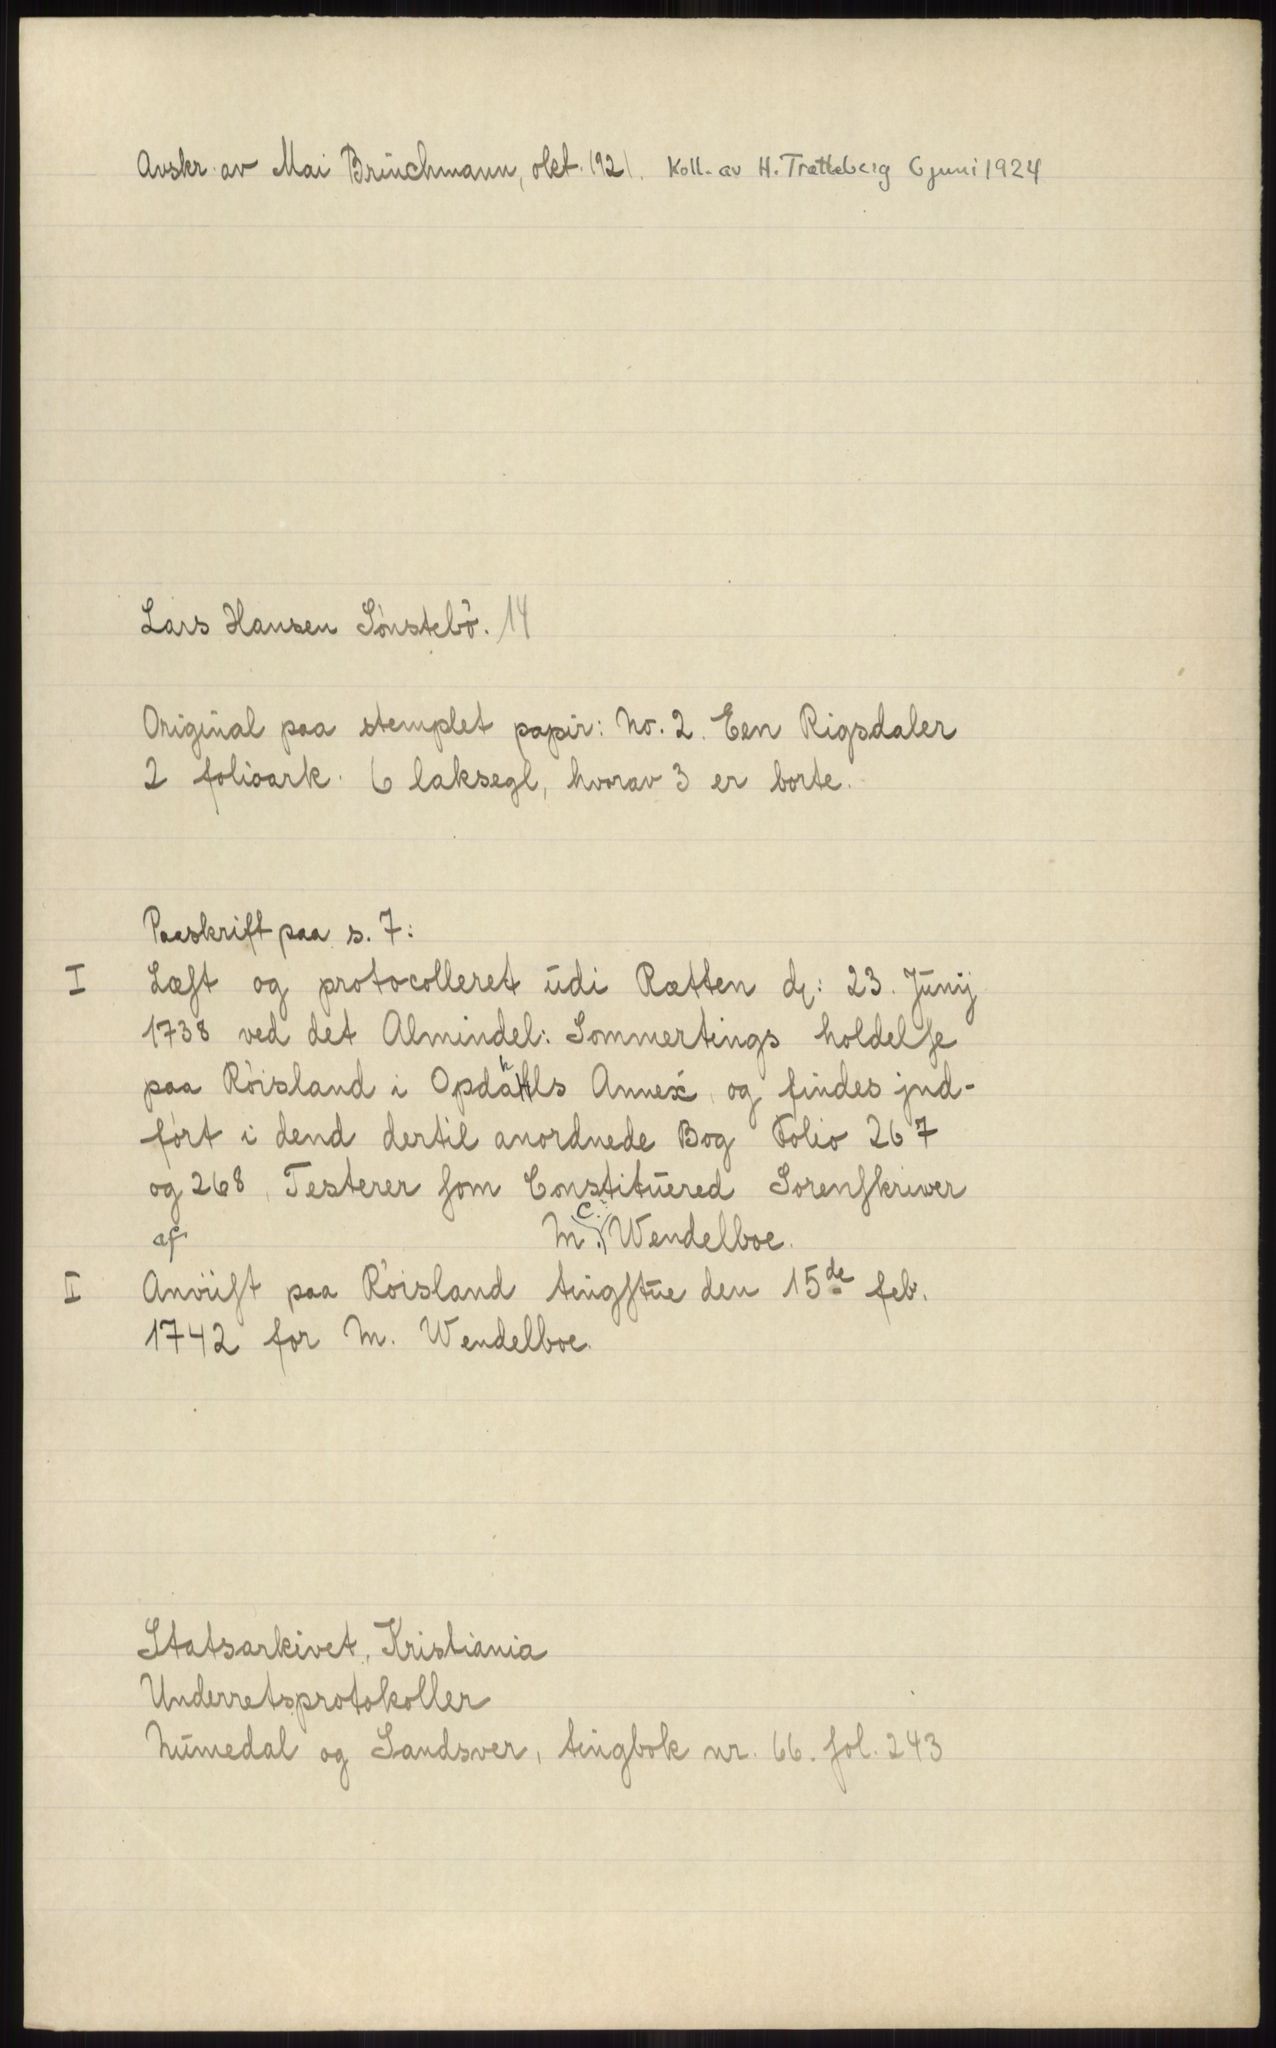 Avskr. av Mai Brüchmann, okt. 1921. Koll. av H. Tratteberg 6 juni 1924
Lars Hansen Sönstebö. 14
Original paa stemplet papir: No. 2. Een Rigsdaler
2 folioark. 6 laksegl, hvorav 3 er borte.
Paaskrift paa s. 7:
I Læst og protocolleret udi Rætten d: 23. Junij
1738 ved det Almindel: Sommertings holdelse
paa Röisland i Opdahls Annex og findes jnd-
fört i dend dertil anordnede Bog Folio 267
og 268, Testerer som Constitüered Sorenskriver
af M. C. Wendelboe.
II Anviist paa Röisland tingstue den 15de feb.
1742 for M. Wendelboe.
Statsarkivet, Kristiania
Underretsprotokoller
Numedal og Sandsver, tingbok nr. 66. fol. 243